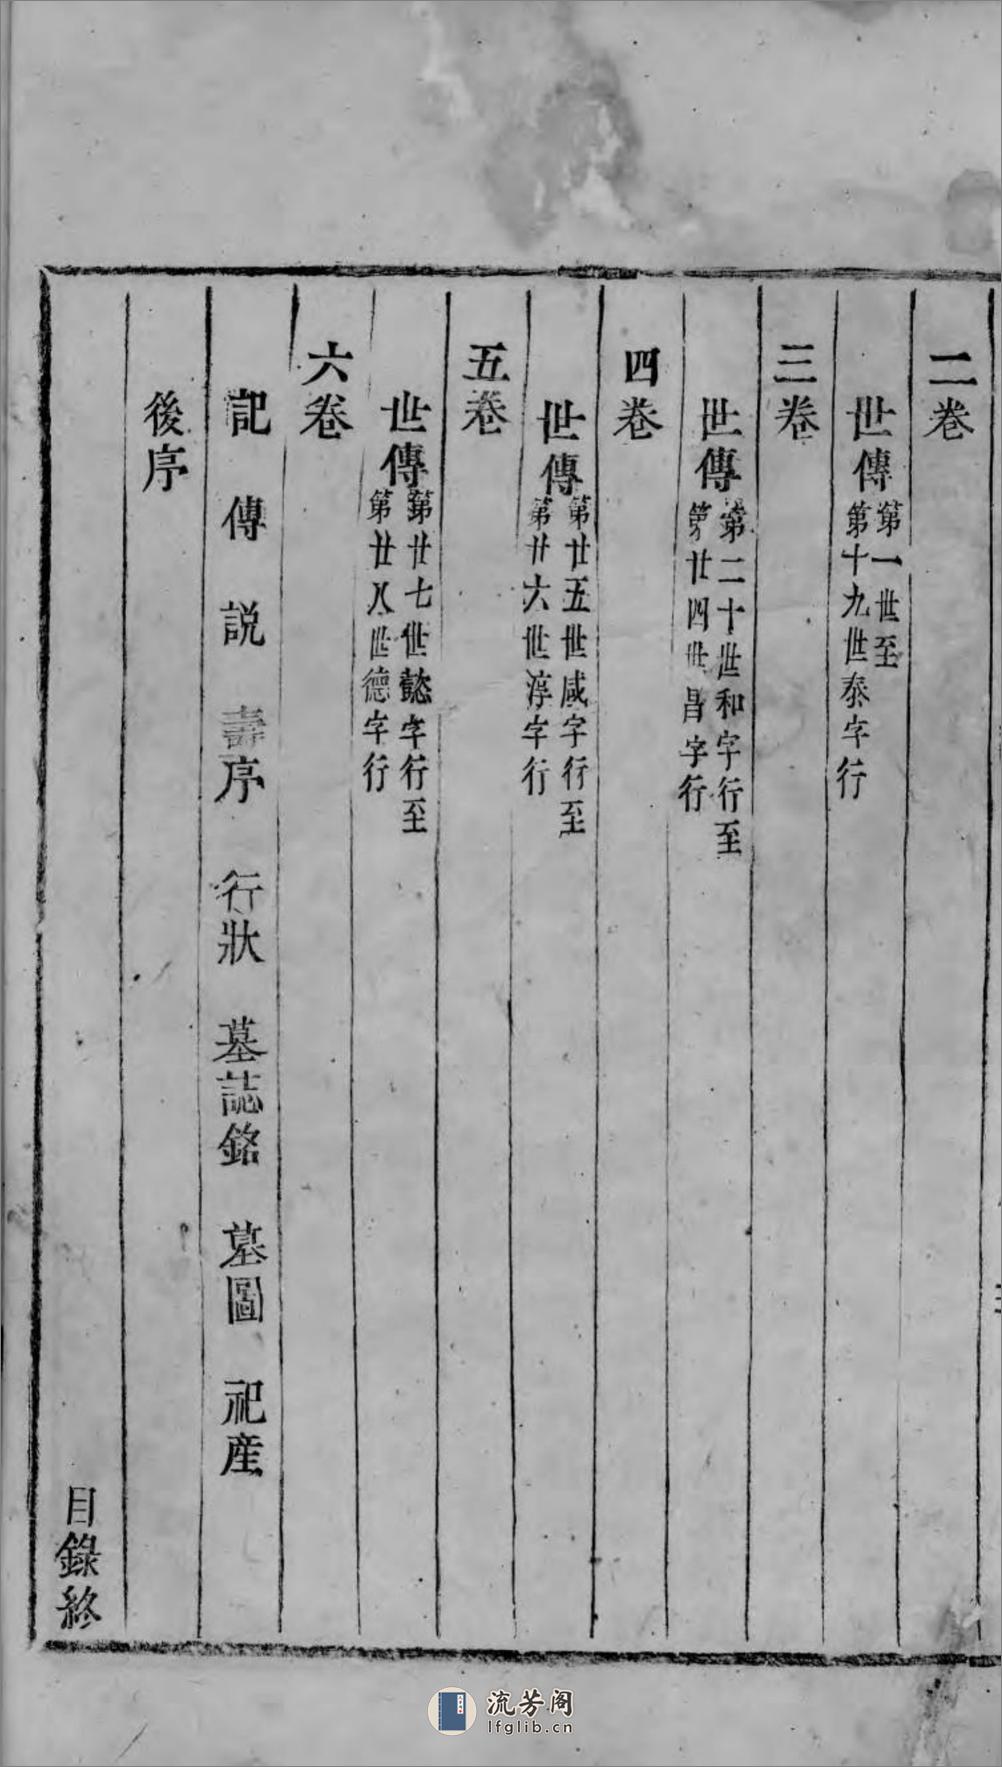 二卷
世傳 第一世至
第十九世泰字行
三卷
世傳 第二十世和字行至
第廿四世昌字行
四卷
世傳 第廿五世咸字行至
第廿六世淳字行
五卷
世傳 第廿七世懿字行至
第廿八世德字行
六卷
記 傳 説 壽序 行狀 墓誌銘 墓圖 祀産
後序
目錄終
流芳阁
lfglib.cn